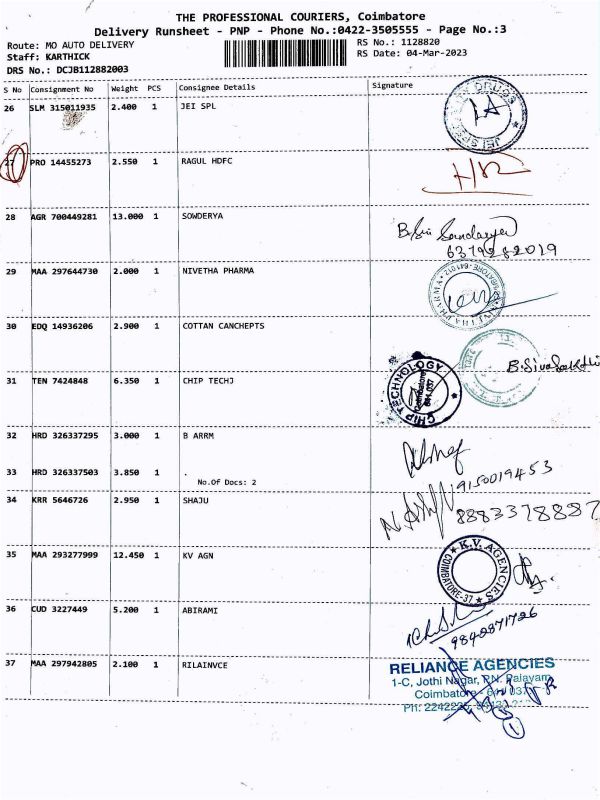 THE PROFESSIONAL COURIERS, Coimbatore
Delivery Runsheet - PNP - Phone No.:0422-3505555 - Page No.:3
Route: MO AUTO DELIVERY
RS No.: 1128820
Staff: KARTHICK
RS Date: 04-Mar-2023
DRS No.: DCJB112882003
S No Consignment No Weight PCS Consignee Details Signature
26 SLM 315011935 2.400 1 JEI SPL
27 PRO 14455273 2.550 1 RAGUL HDFC
28 AGR 700449281 13.000 1 SOWDERYA
6379282019
29 MAA 297644730 2.000 1 NIVETHA PHARMA
30 EDQ 14936206 2.900 1 COTTAN CANCHEPTS
B.Sivasakthi
31 TEN 7424848 6.350 1 CHIP TECHJ
CHIP TECHNOLOGY
Coimbatore
641 037
32 HRD 326337295 3.000 1 B ARRM
33 HRD 326337503 3.850 1 .
No.Of Docs: 2
9150019453
34 KRR 5646726 2.950 1 SHAJU
8883378887
35 MAA 293277999 12.450 1 KV AGN
K.V. AGENCIES
COIMBATORE-37
36 CUD 3227449 5.200 1 ABIRAMI
9842871726
37 MAA 297942805 2.100 1 RILAINVCE
RELIANCE AGENCIES
1-C, Jothi Nagar, P.N. Palayam
Coimbatore - 641 037
PH: 2242225